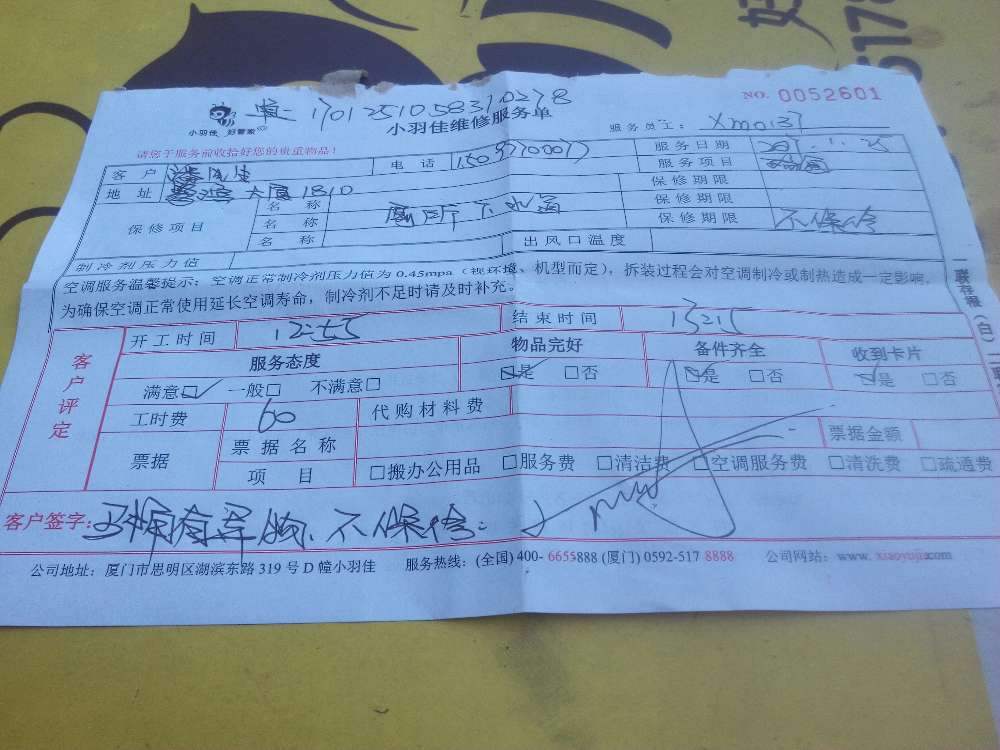 NO. 0052601
17012510583710278
小羽佳 好管家
小羽佳维修服务单
服务员工: Xm0137
请您于服务前收拾好您的贵重物品!
客户 电话 服务日期
服务项目
地址 大厦1810 保修期限
保修项目 名称 保修期限
名称 厕所下水 保修期限 不保修
名称 出风口温度
制冷剂压力值
空调服务温馨提示: 空调正常制冷剂压力值为 0.45mpa (视环境、机型而定), 拆装过程会对空调制冷或制热造成一定影响,
为确保空调正常使用延长空调寿命, 制冷剂不足时请及时补充。
客户评定
开工时间 结束时间 13:15
服务态度 物品完好 备件齐全 收到卡片
满意□ 一般□ 不满意□ □是 □否 □是 □否 □是 □否
工时费 60 代购材料费
票据 票据名称 票据金额
项目 □搬办公用品 □服务费 □清洁费 □空调服务费 □清洗费 □疏通费
客户签字: 不保修
公司地址: 厦门市思明区湖滨东路 319 号 D 幢小羽佳 服务热线: (全国) 400-6655888 (厦门) 0592-517 8888 公司网站: www. xiaoyujia.com
一联存根(白)